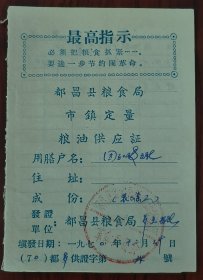 最高指示
必须把粮食抓紧……。
要进一步节约闹革命。
都昌县粮食局
市镇定量
粮油供应证
用膳户名：
住址：
成份：
發證單位 都昌县粮食局
填發日期：一九七〇年 月 日
(70)都 供證字第 號